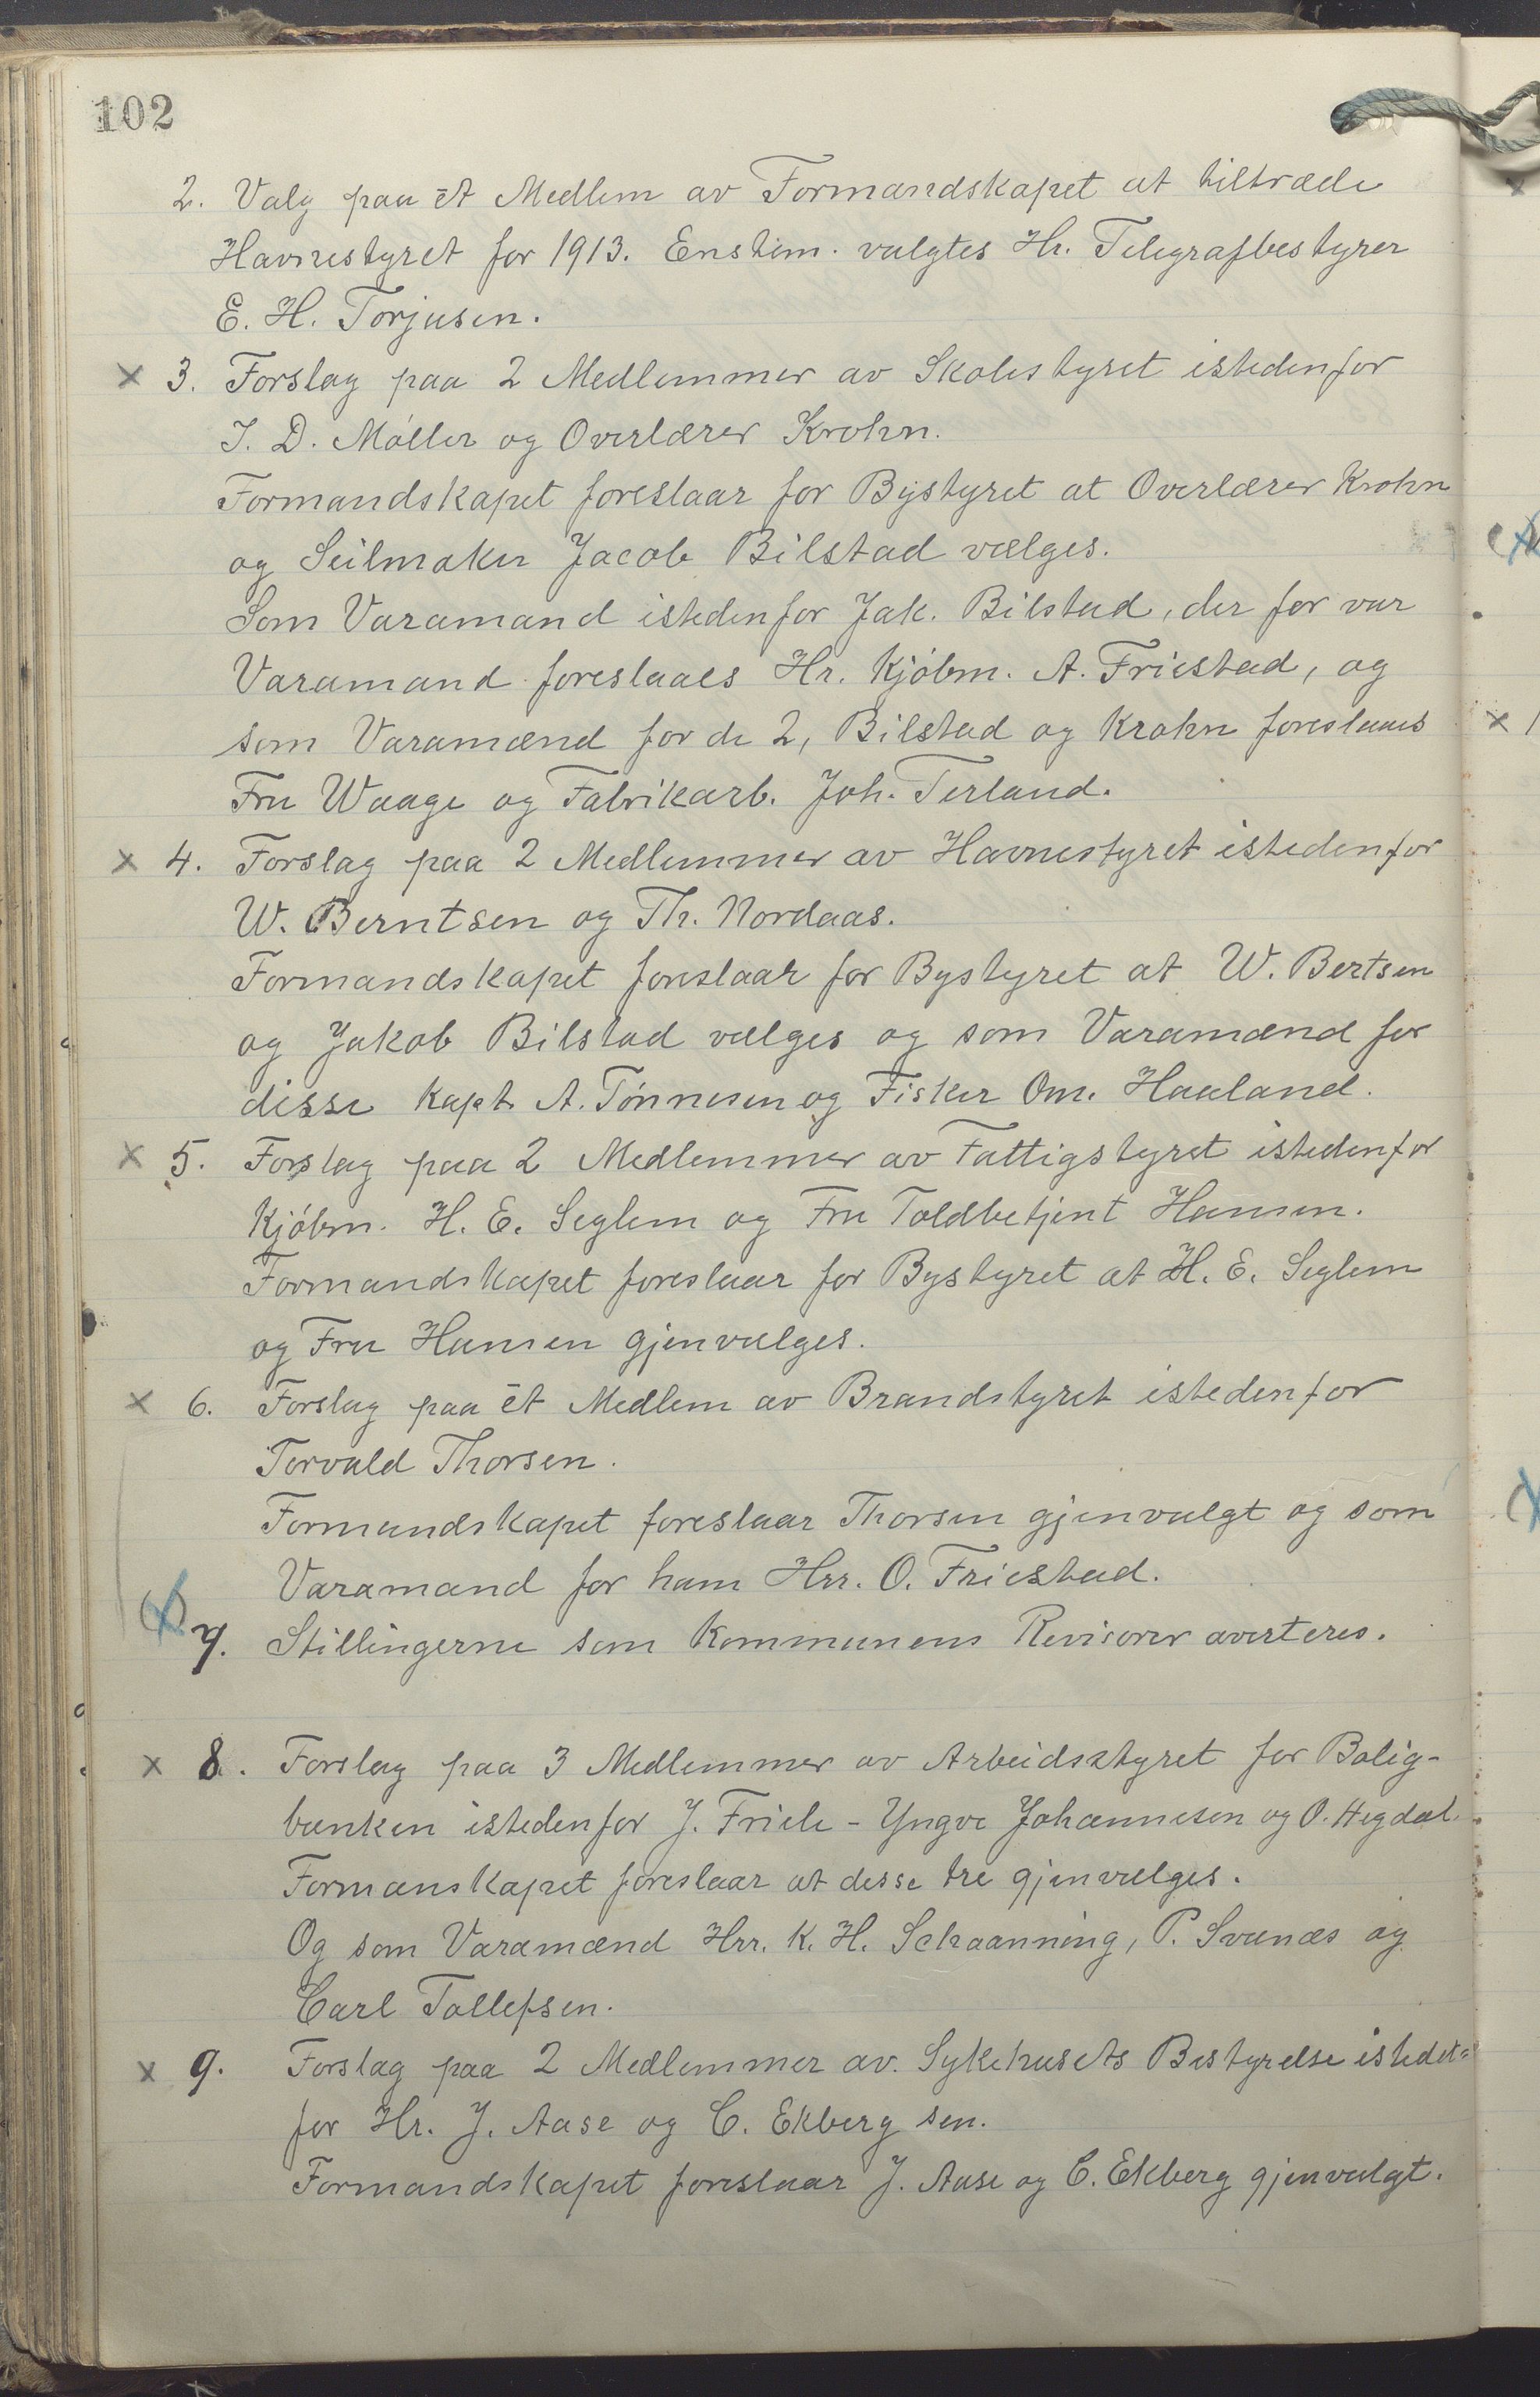 102
2. Valg paa ēt Medlem av Formandskapet at tiltræde
Havnestyret for 1913. Enstem. valgtes Hr. Telegrafbestyrer
E. H. Torjusen.
× 3. Forslag paa 2 Medlemmer av Skolestyret istedenfor
I. D. Möller og Overlærer Krohn.
Formandskapet foreslaar for Bystyret at Overlærer Krohn
og Seilmaker Jacob Bilstad vælges.
Som Varamand istedenfor Jak. Bilstad, der før var
Varamand foreslaaes Hr. Kjöbm. A. Friestad, og
som Varamænd for de 2, Bilstad og Krohn foreslaaes
Fru Waage og Fabrikarb. Joh. Terland.
× 4. Forslag paa 2 Medlemmer av Havnestyret istedenfor
W. Berntsen og Th. Nordaas.
Formandskapet foreslaar for Bystyret at W. Bertsen
og Jakob Bilstad vælges og som Varamænd for
disse Kapt. A. Tönnesen og Fisker Om. Haaland.
× 5. Forslag paa 2 Medlemmer av Fattigstyret istedenfor
Kjöbm. H. E. Seglem og Fru Toldbetjent Hansen.
Formandskapet foreslaar for Bystyret at H. E. Seglem
og Fru Hansen gjenvælges.
× 6. Forslag paa ēt Medlem av Brandstyret istedenfor
Torvald Thorsen.
Formandskapet foreslaar Thorsen gjenvalgt og som
Varamand for ham Hrr. O. Friestad.
7. Stillingerne som Kommunens Revisorer averteres.
× 8. Forslag paa 3 Medlemmer av Arbeidsstyret for Bolig-
banken istedenfor J. Friele - Yngve Johannesen og O. Hegdal.
Formanskapet foreslaar at desse tre gjenvælges.
Og som Varamænd Hrr. K. H. Schaanning, P. Svanæs og
Carl Tollefsen.
× 9. Forslag paa 2 Medlemmer av Sykehusets Bestyrelse istedet=
for Hr. J. Aase og C. Ekberg sen.
Formandskapet foreslaar J. Aase og C. Ekberg gjenvalgt.